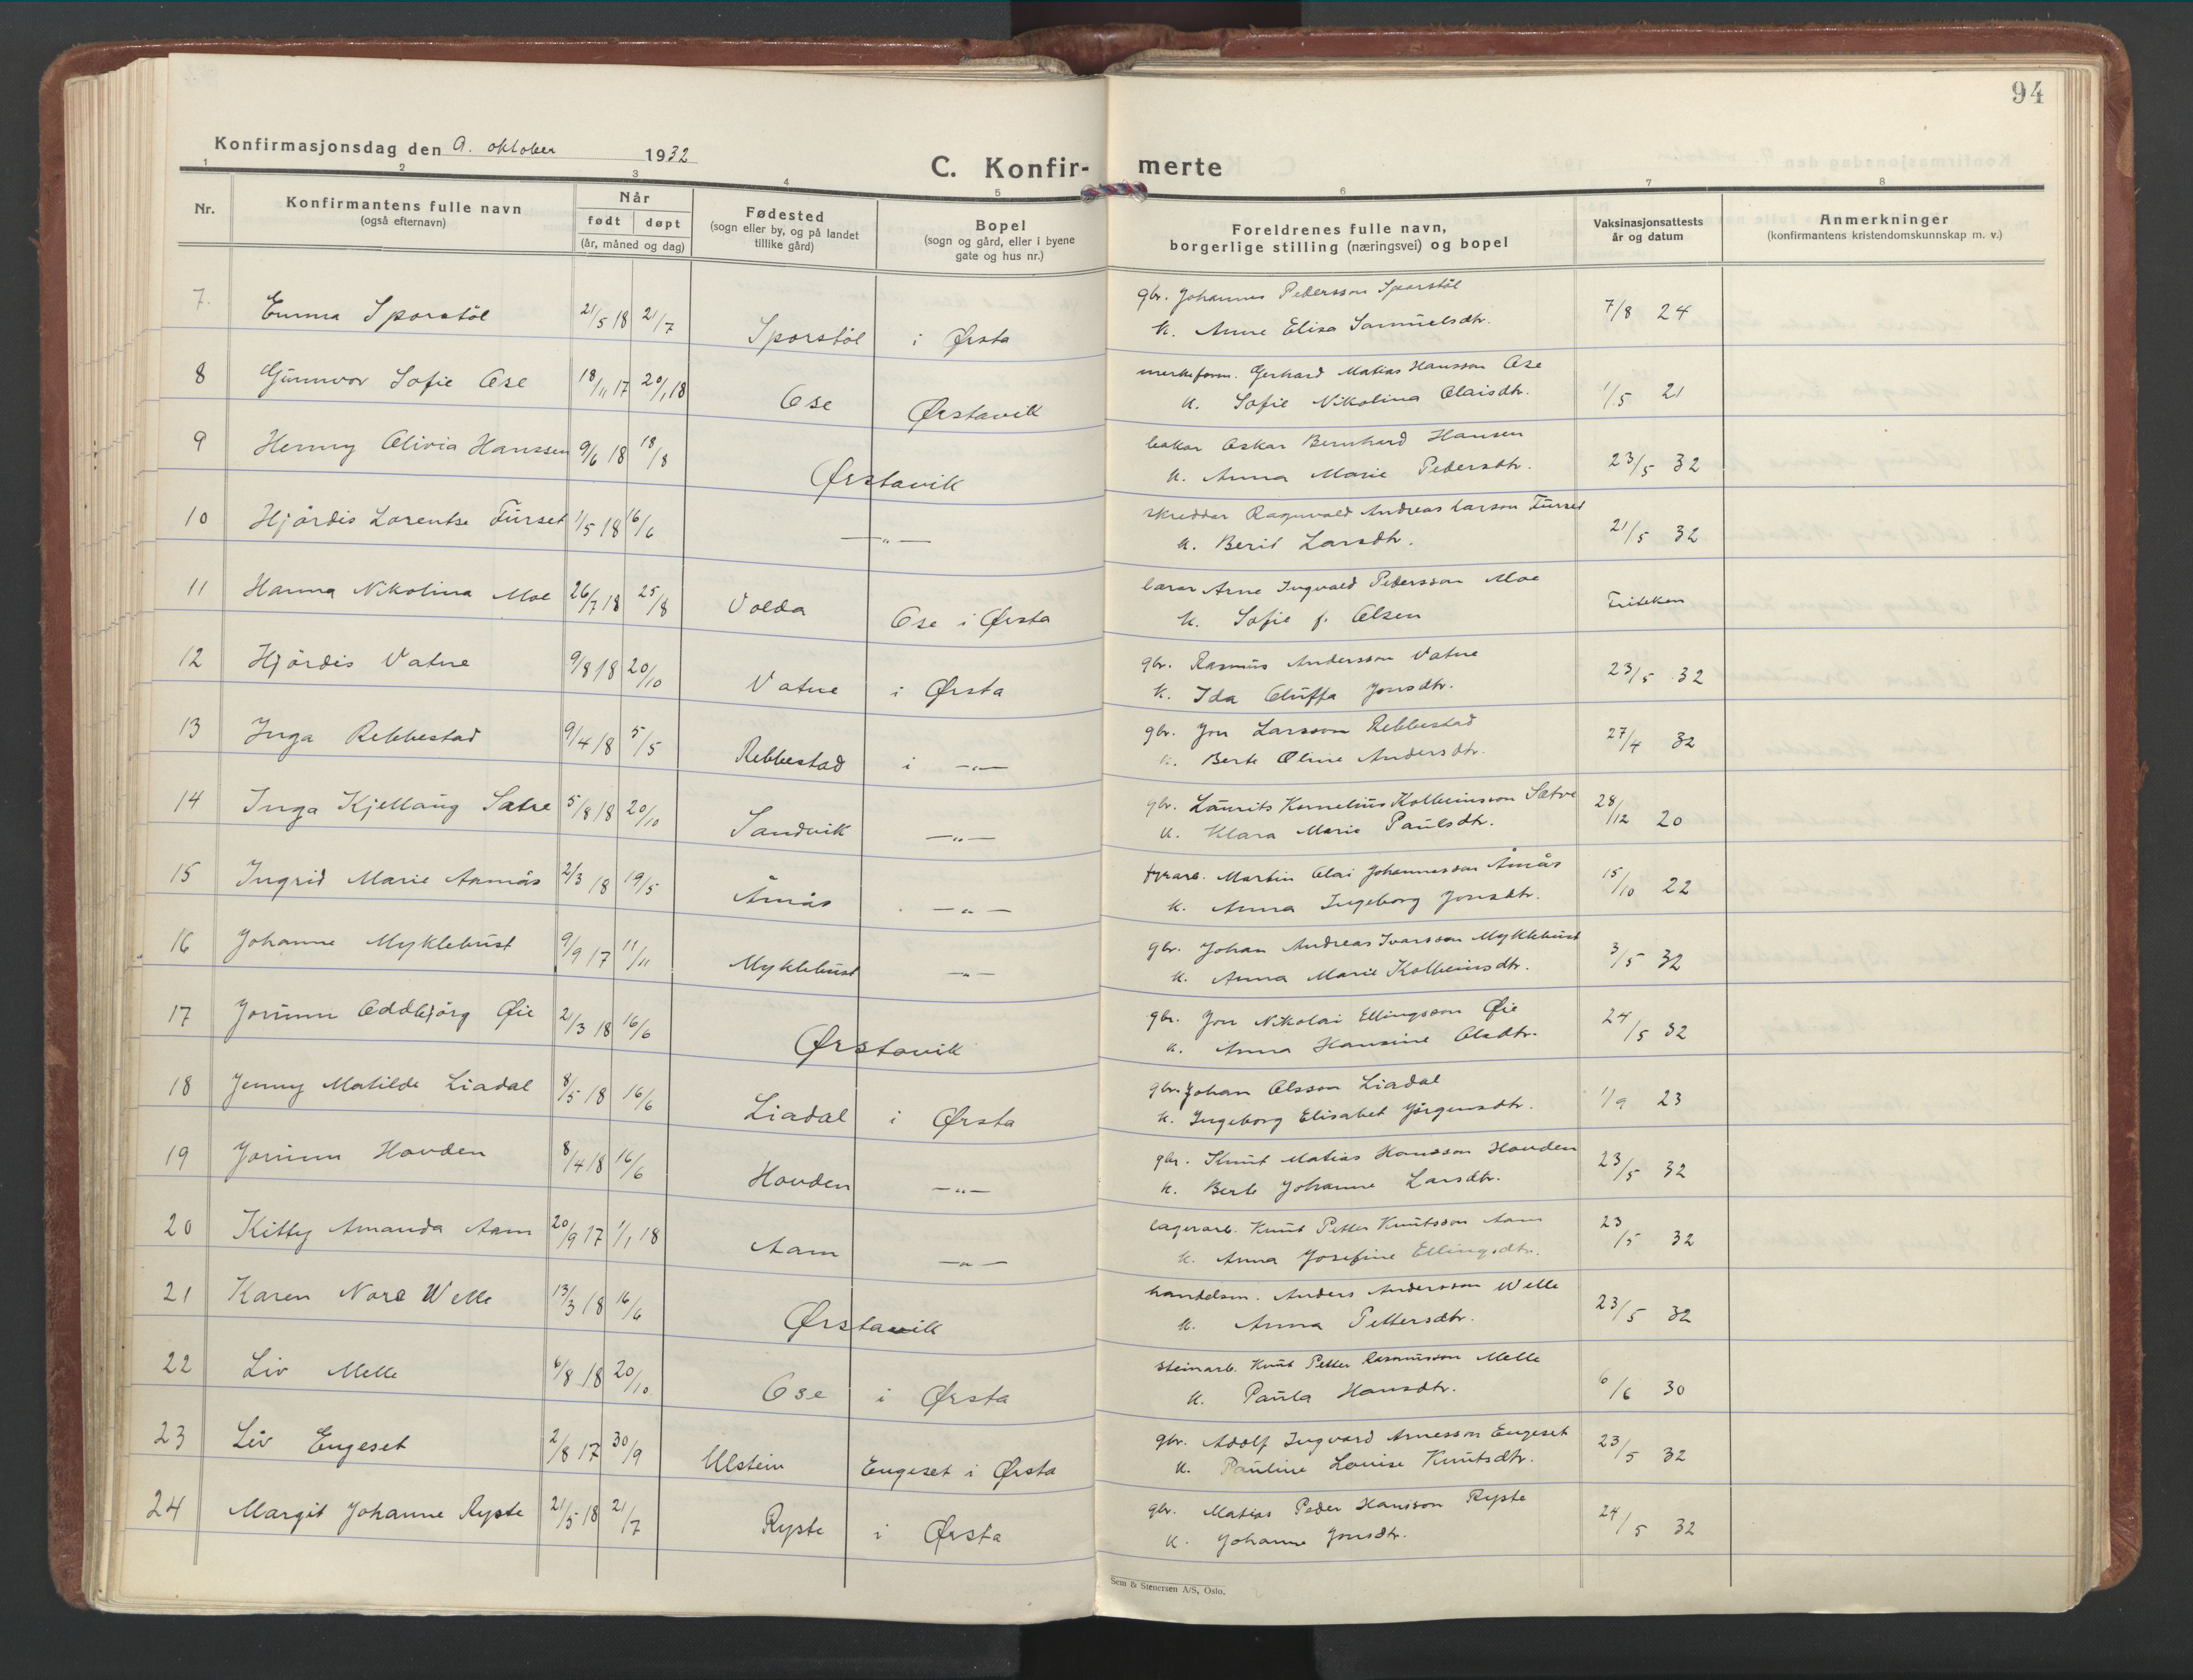 94
Konfirmasjonsdag den 9. oktober 1932
C. Konfir- merte
1 2 3 4 5 6 7 8
Nr.
Konfirmantens fulle navn
(også efternavn)
Når
født døpt
(år, måned og dag)
Fødested
(sogn eller by, og på landet
tillike gård)
Bopel
(sogn og gård, eller i byene
gate og hus nr.)
Foreldrenes fulle navn,
borgerlige stilling (næringsvei) og bopel
Vaksinasjonsattests
år og datum
Anmerkninger
(konfirmantens kristendomskunnskap m. v.)
7. Emma Sporstöl 21/5 18 21/7 Sporstöl i Ørsta gbr. Johannes Pedersson Sporstöl 7/8 24
k. Anne Elisa Samuelsdtr.
8 Gunnvor Sofie Ose 18/11 17 20/1 18 Ose Ørstavik merkeform. Gerhard Matias Hansson Ose 1/5 21
k. Sofie Nikolina Olaisdtr.
9 Henny Olivia Hanssen 9/6 18 18/8 Ørstavik bakar Oskar Bernhard Hansen 23/5 32
k. Anna Marie Pedersdtr.
10 Hjördis Lorentse Furset 1/5 18 16/6 —"— skreddar Ragnvald Andreas Larson Furset 21/5 32
k. Berit Larsdtr.
11 Hanna Nikolina Moe 26/7 18 25/8 Volda Ose i Ørsta lærar Arne Ingvald Pedersson Moe Friteken
k. Sofie f. Olsen
12 Hjördis Vatne 9/8 18 20/10 Vatne i Ørsta gbr. Rasmus Andersson Vatne 23/5 32
k. Ida Oluffa Jonsdtr.
13 Inga Rebbestad 9/4 18 5/5 Rebbestad i —"— gbr. Jon Larsson Rebbestad 27/4 32
k. Berte Oline Andersdtr.
14 Inga Kjellaug Sætre 5/8 18 20/10 Sandvik —"— gbr. Laurits Kornelius Kolbeinsson Sætre 28/12 20
k. Klara Marie Paulsdtr.
15 Ingrid Marie Aamås 2/3 18 19/5 Åmås —"— Martin Olai Johannesson Åmås 15/10 22
k. Anna Ingeborg Jonsdtr.
16 Johanne Myklebust 9/9 17 11/11 Myklebust —"— gbr. Johan Andreas Ivarsson Myklebust 3/5 32
k. Anna Marie Kolbeinsdtr.
17 Jorunn Oddbjörg Øie 21/3 18 16/6 Ørstavik gbr. Jon Nikolai Ellingsson Øie 24/5 32
k. Anna Hansine Olsdtr.
18 Jenny Matilde Liadal 8/5 18 16/6 Liadal i Ørsta gbr. Johan Olsson Liadal 1/9 23
k. Ingeborg Elisabet Jörgensdtr.
19 Jorunn Hovden 8/4 18 16/6 Hovden —"— gbr. Knut Matias Hansson Hovden 23/5 32
k. Berte Johanne Larsdtr.
20 Kitty Amanda Aam 20/9 17 1/1 18 Aam —"— lagerarb. Knut Petter Knutsson Aam 23/5 32
k. Anna Josefine Ellingsdtr.
21 Karen Nora Welle 13/3 18 16/6 Ørstavik handelsm. Anders Andersson Welle 23/5 32
k. Anna Pettersdtr.
22 Liv Melle 6/8 18 20/10 Ose i Ørsta steinarb. Knut Petter Rasmusson Melle 6/6 30
k. Paula Hansdtr.
23 Liv Engeset 2/8 17 30/9 Ulstein Engeset i Ørsta gbr. Adolf Ingvard Arnesson Engeset 23/5 32
k. Pauline Lovise Knutsdtr.
24 Margit Johanne Ryste 21/5 18 21/7 Ryste i Ørsta gbr. Matias Peder Hansson Ryste 24/5 32
k. Johanne Jonsdtr.
Sem & Stenersen A/S, Oslo.